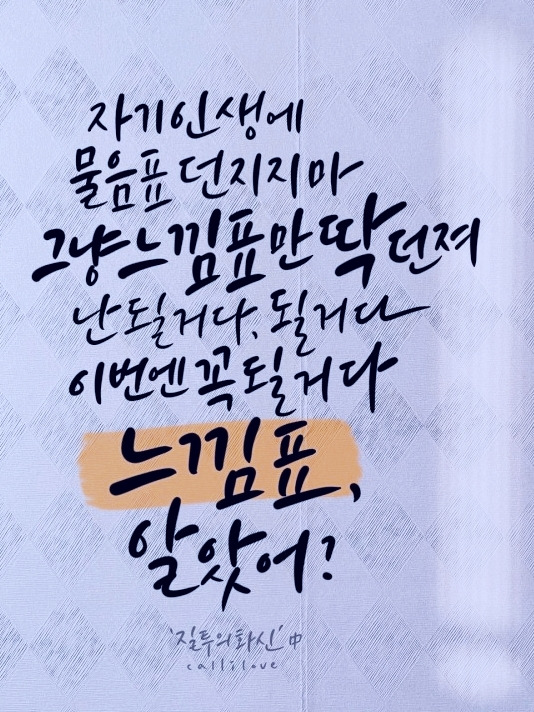 자기인생에
물음표 던지지마
그냥 느낌표만 딱 던져
난 될거다, 될거다
이번엔 꼭 될거다
느낌표,
알앗어?
'질투의화신' 中
callilove